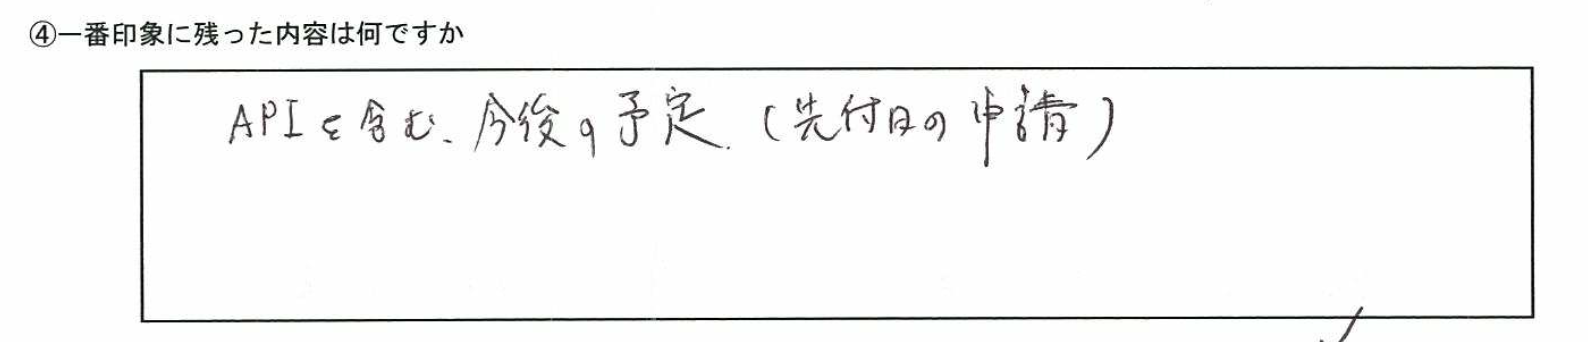 ④一番印象に残った内容は何ですか
APIを含む、今後の予定.(先付日の申請)